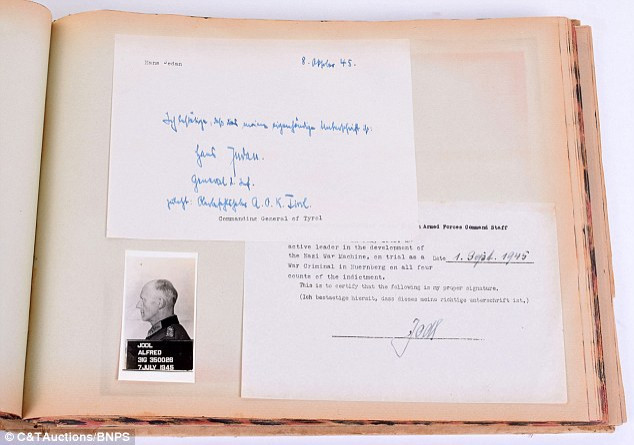 Hans
8. Oktober 45.
Ich bestätige, daß das meine eigenhändige Unterschrift ist:
Hans
General d. Inf.
A. O. K. Tirol.
Commanding General of Tyrol
Armed Forces Command Staff
active leader in the development of
the Nazi War Machine, on trial as a
War Criminal in Nuernberg on all four
counts of the indictment.
Date 1. Sept. 1945
This is to certify that the following is my proper signature.
(Ich bestaetige hiermit, dass dieses meine richtige unterschrift ist.)
Jodl
JODL
ALFRED
31G 350026
7 JULY 1945
© C&TAuctions/BNPS